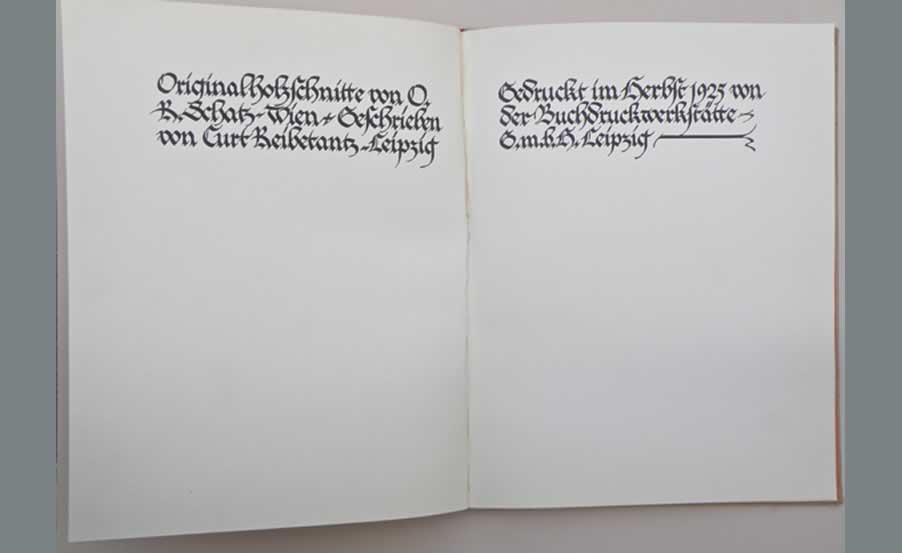 Originalholzschnitte von O.
R. Schatz-Wien - Geschrieben
von Curt Reibetantz-Leipzig
Gedruckt im Herbst 1925 von
der Buchdruckwerkstätte
G.m.b.H. Leipzig